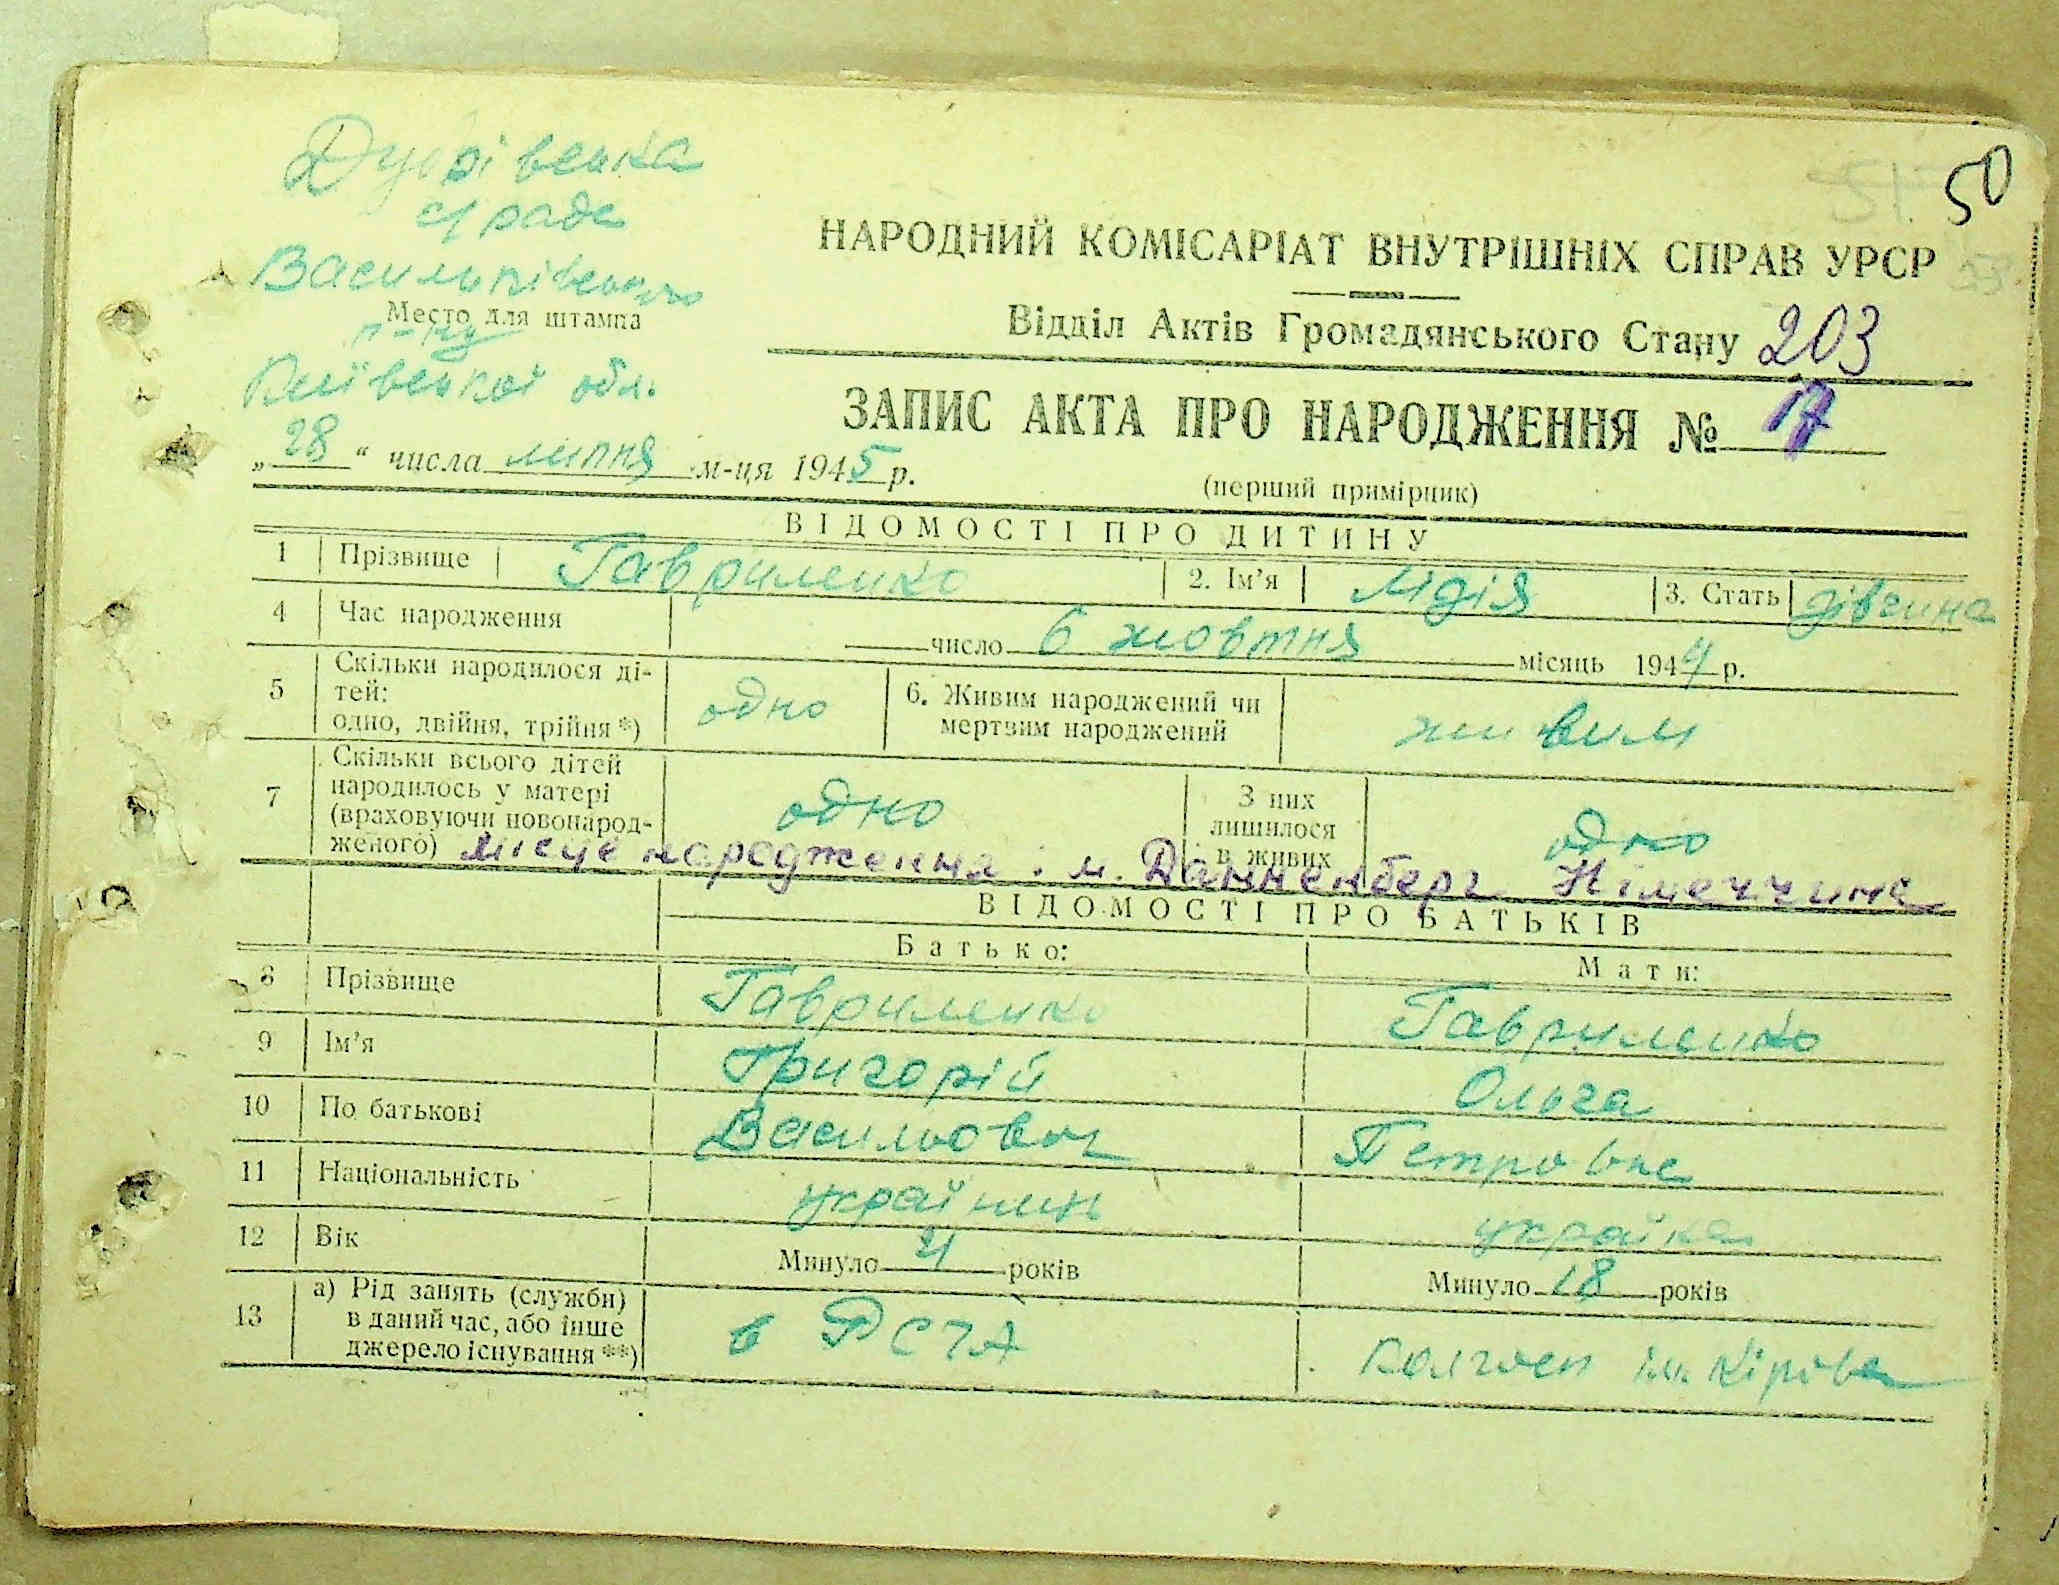 50
Дубрівська
с/рада
Васильківського
Место для штампа
р-ну
Київської обл.
НАРОДНИЙ КОМІСАРІАТ ВНУТРІШНІХ СПРАВ УРСР
Відділ Актів Громадянського Стану 203
ЗАПИС АКТА ПРО НАРОДЖЕННЯ № 17
„ 28 “ числа липня м-ця 1945 р.
(перший примірник)
ВІДОМОСТІ ПРО ДИТИНУ
1 Прізвище Гавриленко 2. Ім’я Лідія 3. Стать дівчина
4 Час народження число 6 жовтня місяць 1944 р.
5 Скільки народилося ді-
тей:
одно, двійня, трійня *) одно 6. Живим народжений чи
мертвим народжений живим
7 Скільки всього дітей
народилось у матері
(враховуючи новонарод-
женого) одно З них
лишилося
в живих одно
місце народження: м. Данненберг Німеччина
ВІДОМОСТІ ПРО БАТЬКІВ
Батько: Мати:
8 Прізвище Гавриленко Гавриленко
9 Ім’я Григорій Ольга
10 По батькові Васильович Петровна
11 Національність українин українка
12 Вік Минуло років Минуло 18 років
13 а) Рід занять (служби)
в даний час, або інше
джерело існування **) в РСЧА колгосп ім. Кірова